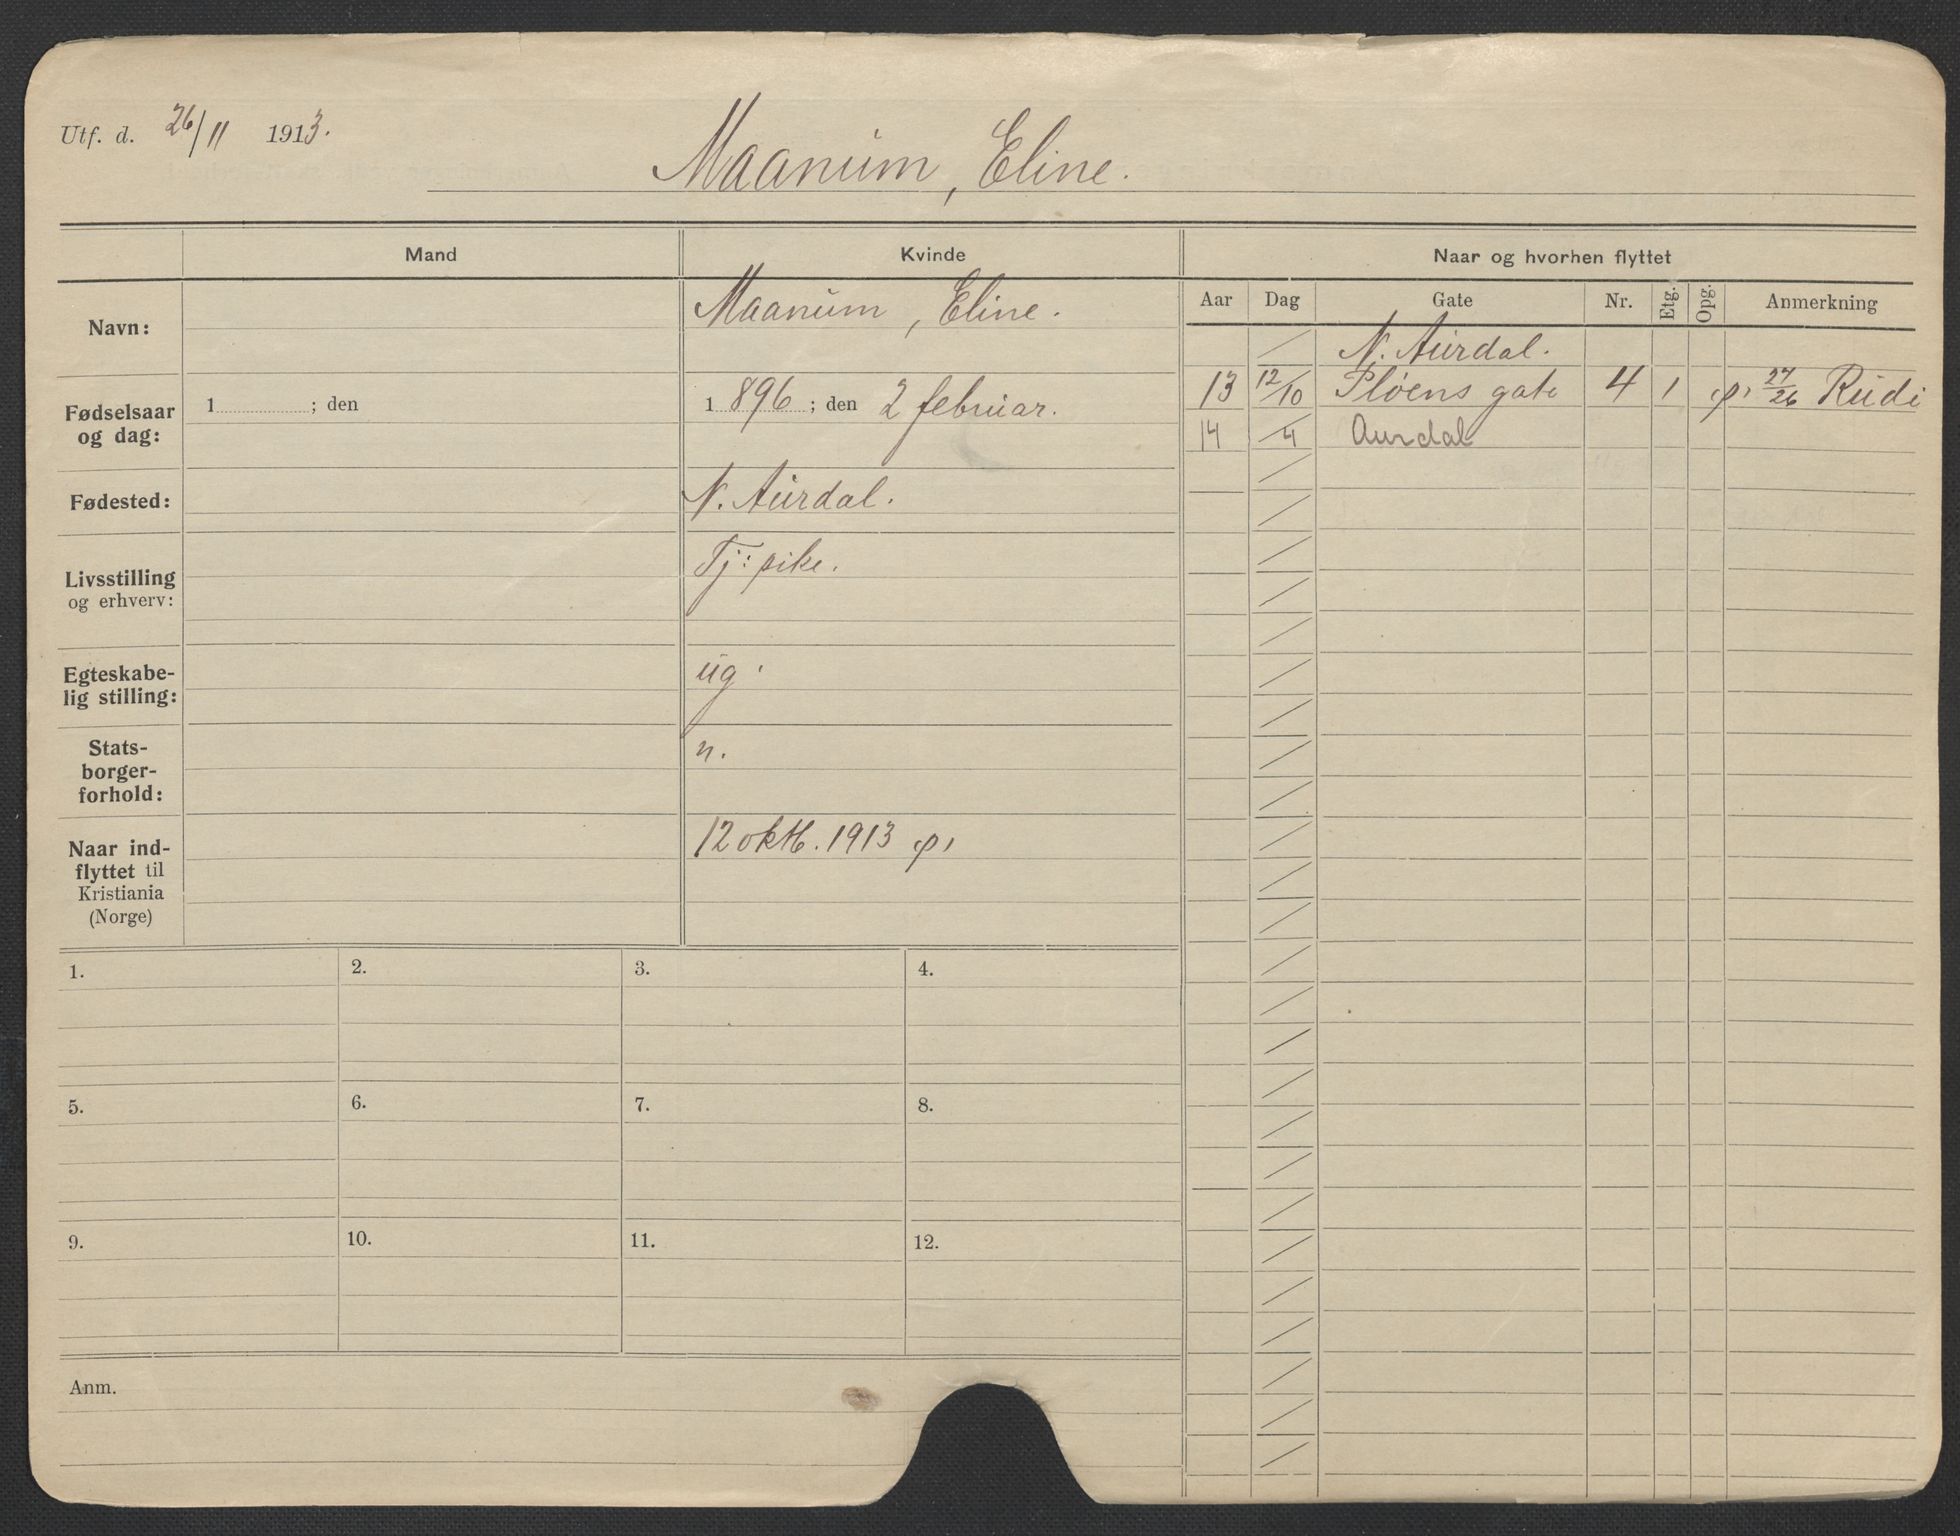 Utf. d. 26/11 1913.
Maanum, Eline.
Mand
Kvinde
Naar og hvorhen flyttet
Navn:
Maanum, Eline.
Fødselsaar og dag:
1 ; den
1896 ; den 2 februar.
Fødested:
N. Aurdal.
Livsstilling og erhverv:
Tj: pike.
Egteskabe-
lig stilling:
ug.
Stats-
borger-
forhold:
n.
Naar ind-
flyttet til
Kristiania
(Norge)
12 oktb. 1913
Aar Dag Gate Nr. Etg. Opg. Anmerkning
/ N. Aurdal.
13 12/10 Pløens gate 4 1 27/26 Rudi
14 /4 Aurdal
1. 2. 3. 4.
5. 6. 7. 8.
9. 10. 11. 12.
Anm.